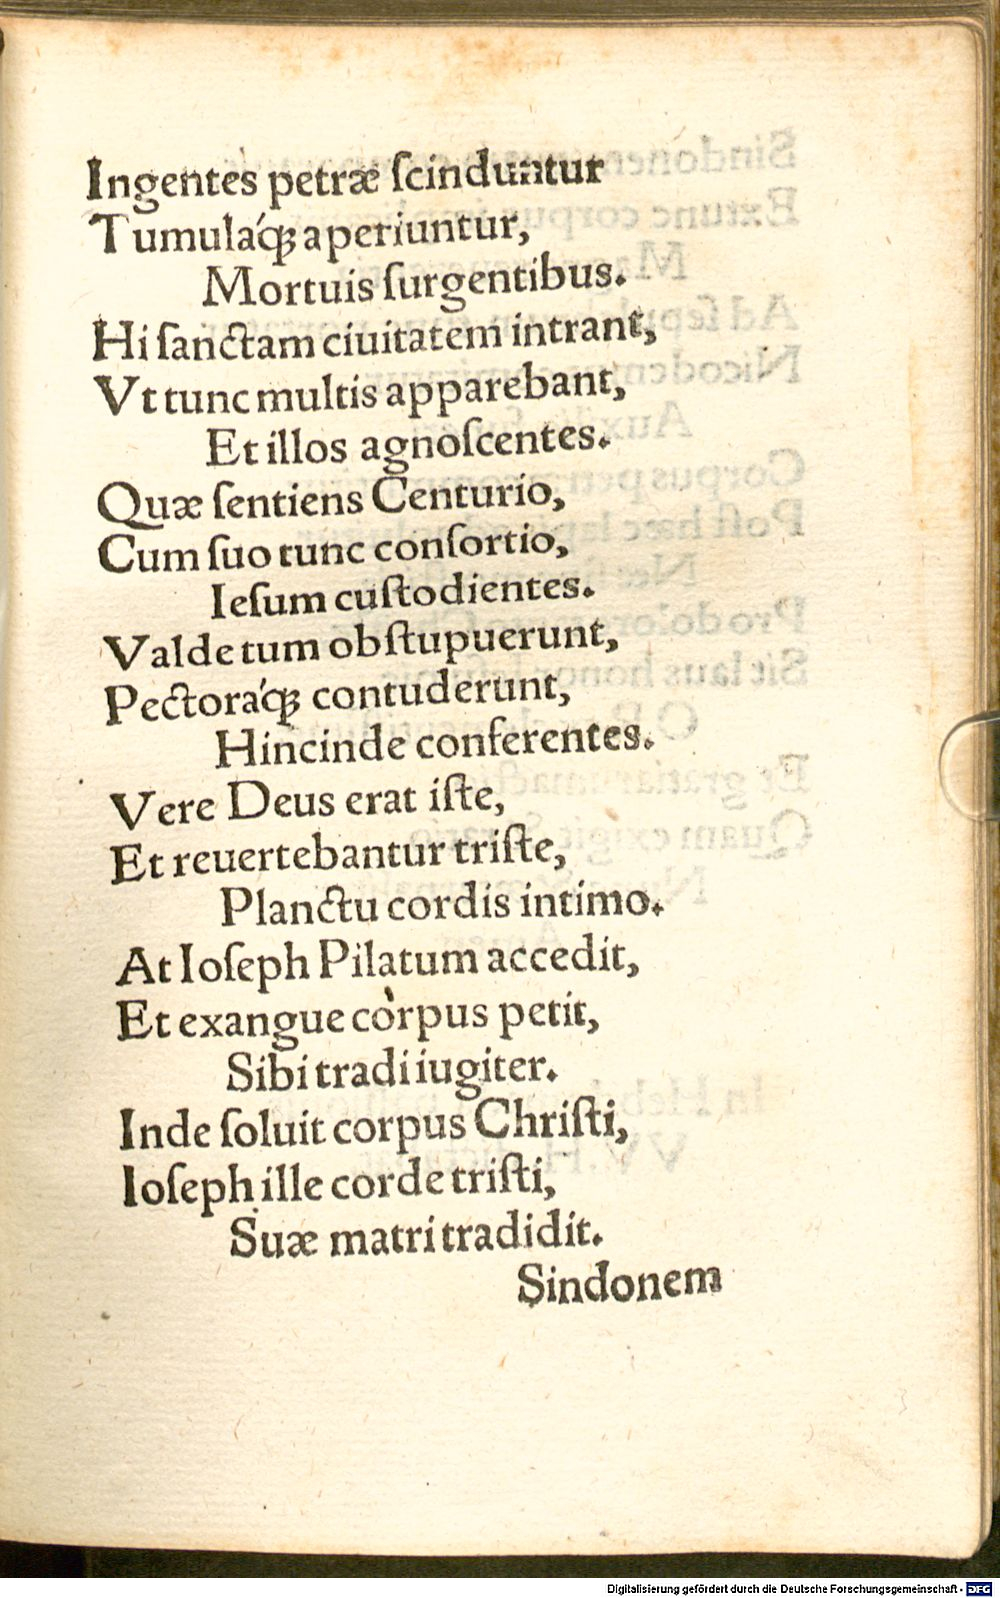 Ingentes petræ ſcinduntur
Tumuláq; aperiuntur,
Mortuis ſurgentibus.
Hi ſanctam ciuitatem intrant,
Vt tunc multis apparebant,
Et illos agnoſcentes.
Quæ ſentiens Centurio,
Cum ſuo tunc conſortio,
Ieſum cuſtodientes.
Valde tum obſtupuerunt,
Pectoráq; contuderunt,
Hincinde conferentes.
Vere Deus erat iſte,
Et reuertebantur triſte,
Planctu cordis intimo.
At Ioſeph Pilatum accedit,
Et exangue corpus petit,
Sibi tradi iugiter.
Inde ſoluit corpus Chriſti,
Ioſeph ille corde triſti,
Suæ matri tradidit.
Sindonem
Digitalisierung gefördert durch die Deutsche Forschungsgemeinschaft - DFG